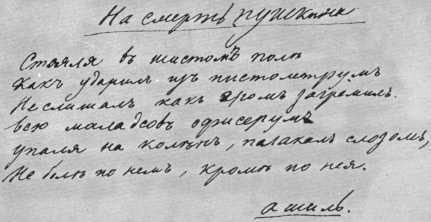 На смерть Пушкина
Стояля въ шистомъ полъ
Какъ ударилъ изъ пистолтрумъ
Не слишалъ какъ громъ загремилъ.
всю маладсовъ офисерумъ
упаля на колънъ, пачакалъ слозомъ,
Не болъ по немъ, кромъ по нея.
ашиль.